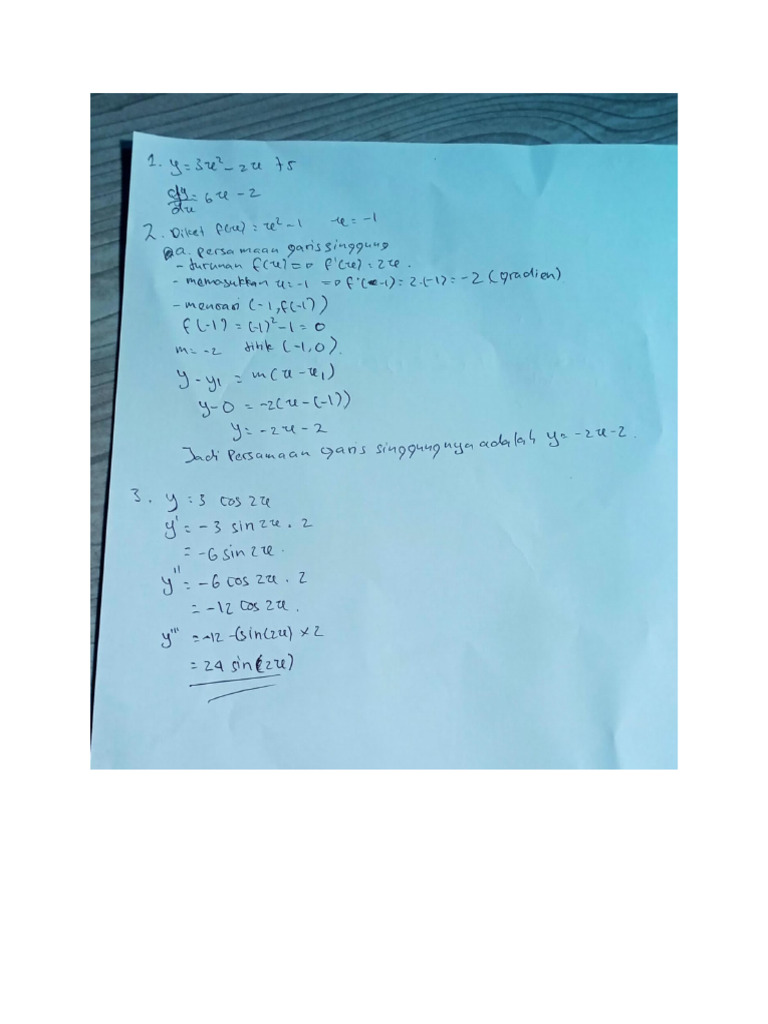 1. y = 3x² - 2x + 5
dy/dx = 6x - 2
2. Diket f(x) = x² - 1 x = -1
a. Persamaan garis singgung
- turunan f(x) => f'(x) = 2x.
- memasukkan x = -1 => f'(-1) = 2.(-1) = -2 (gradien)
- mencari (-1, f(-1))
f(-1) = (-1)² - 1 = 0
m = -2 titik (-1,0).
y - y₁ = m(x - x₁)
y - 0 = -2(x - (-1))
y = -2x - 2
Jadi Persamaan garis singgungnya adalah y = -2x - 2.
3. y = 3 cos 2x
y' = -3 sin 2x . 2
= -6 sin 2x.
y'' = -6 cos 2x . 2
= -12 cos 2x.
y''' = -12 -(sin(2x) × 2
= 24 sin(2x)